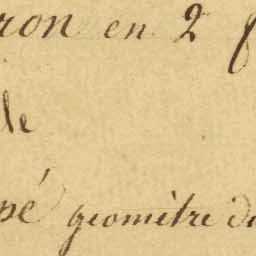 ron en 2 f
le
pé geomètre du